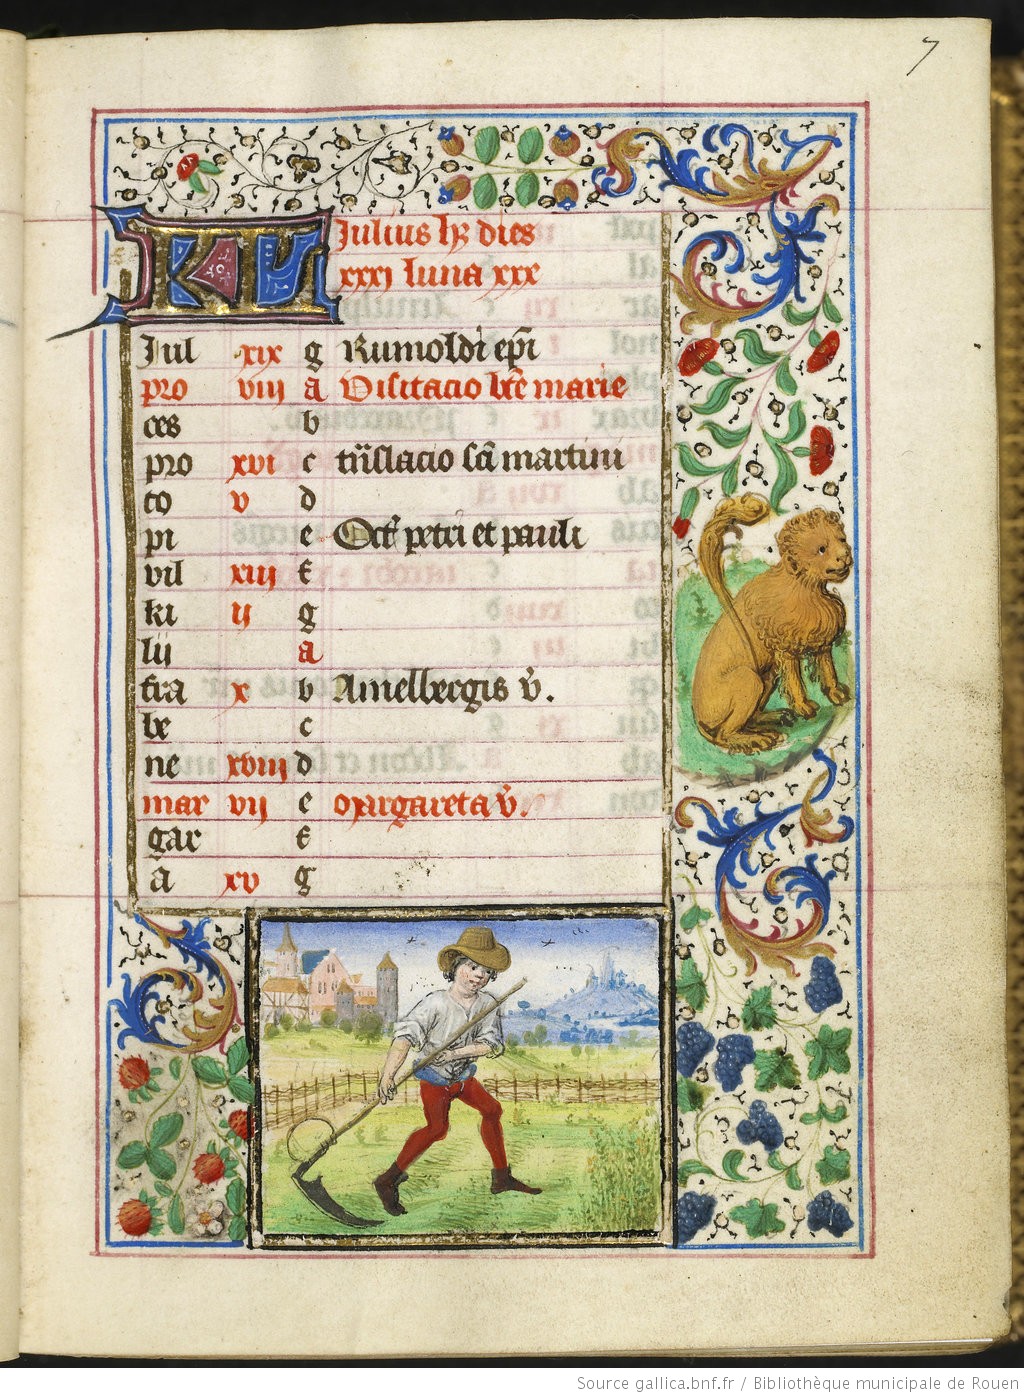 7
KL Julius hꝫ dies
xxxi luna xxx
Jul xix g Rumoldi ep̄i
pro viii a Visitacio bt̄e marie
ces b
pro xvi c trāslacio sc̄i martini
co v d
pi e Oct̄ petri et pauli
vil xiii f
ki ij g
lij a
fra x b Amelbergis v̄.
be c
ne xviii d
mar vij e Margareta v̄.
gar f
a xv g
Source gallica.bnf.fr / Bibliothèque municipale de Rouen